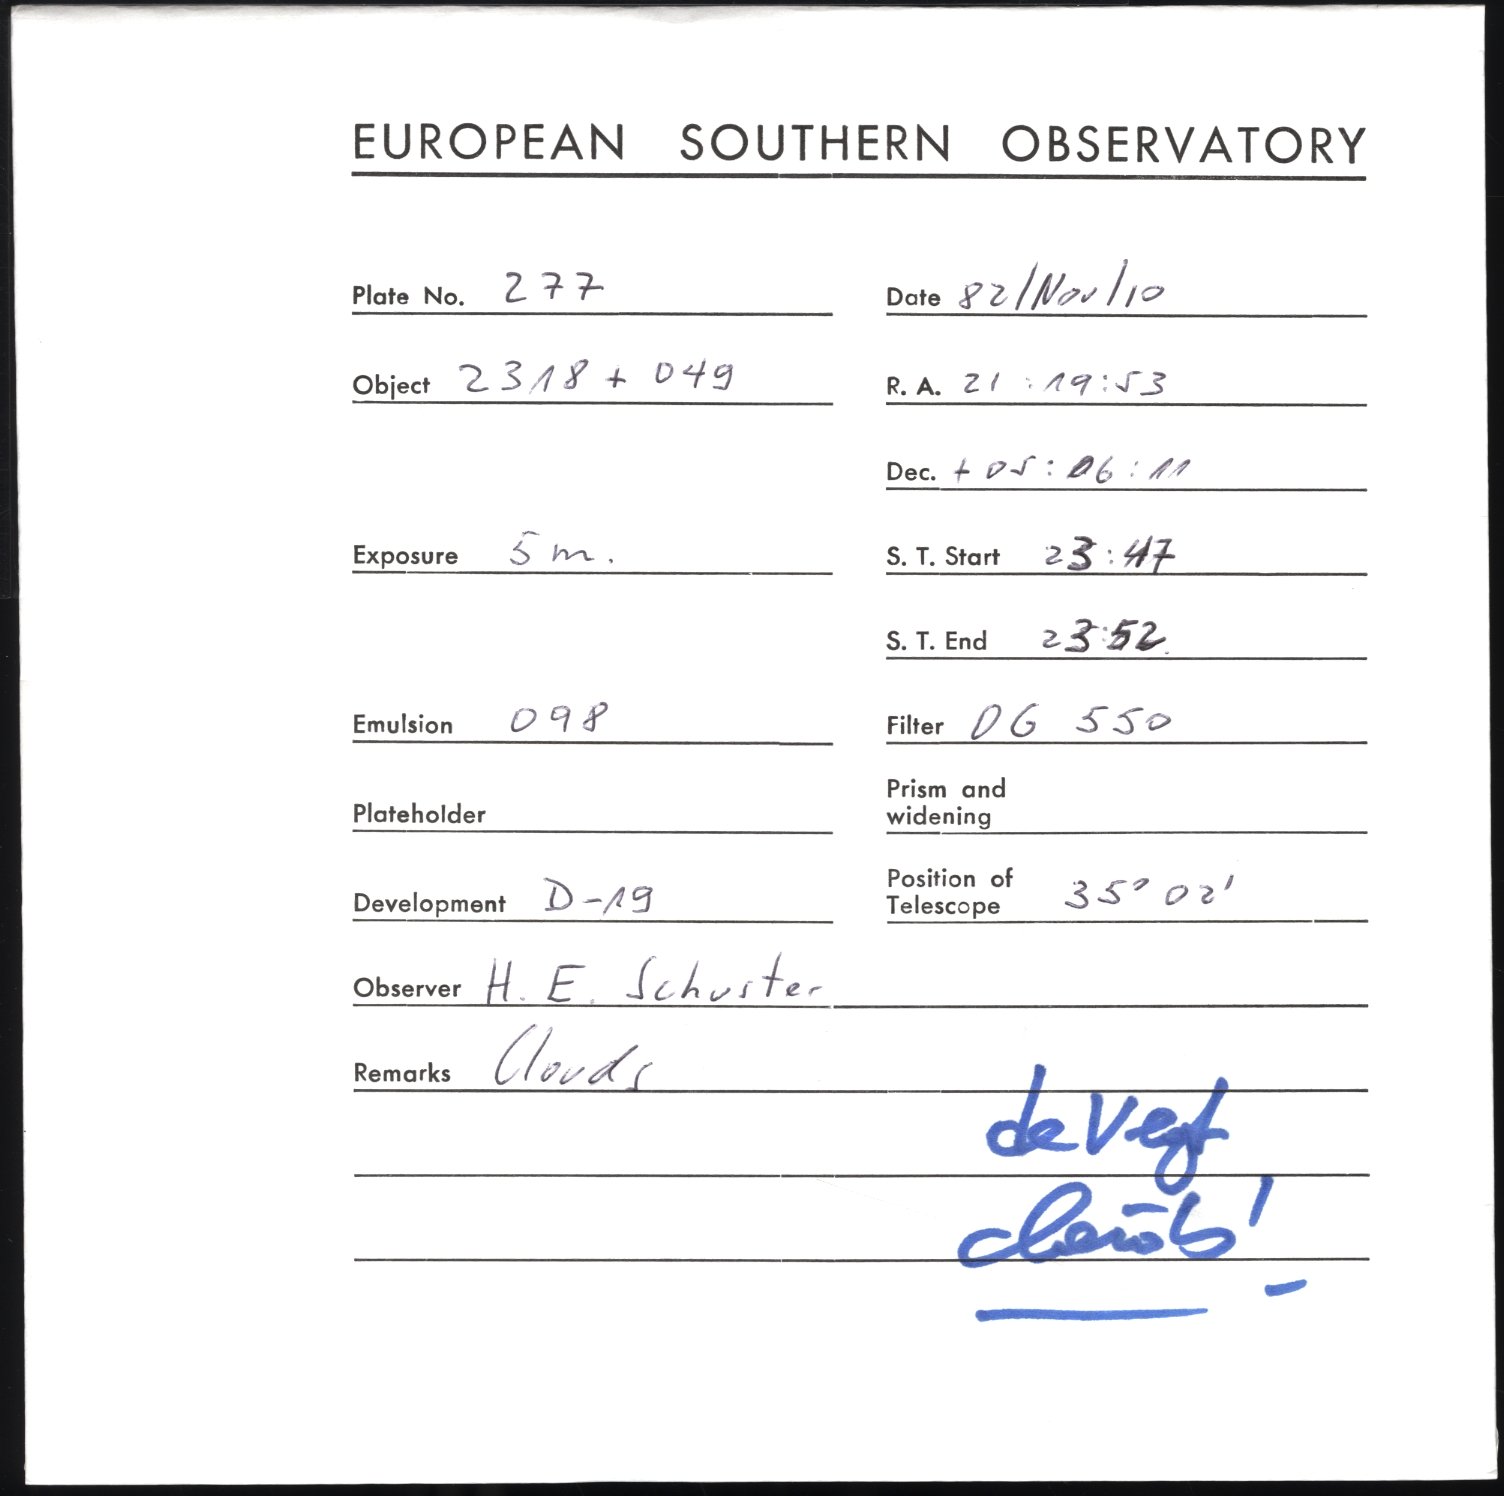 EUROPEAN SOUTHERN OBSERVATORY
Plate No. 277
Date 82/Nov/10
Object 2318 + 049
R. A. 21:19:53
Dec. + 05:06:11
Exposure 5 m.
S. T. Start 23:47
S. T. End 23:52
Emulsion 098
Filter OG 550
Plateholder
Prism and
widening
Development D-19
Position of
Telescope 35° 02'
Observer H. E. Schuster
Remarks Clouds
de Vegt